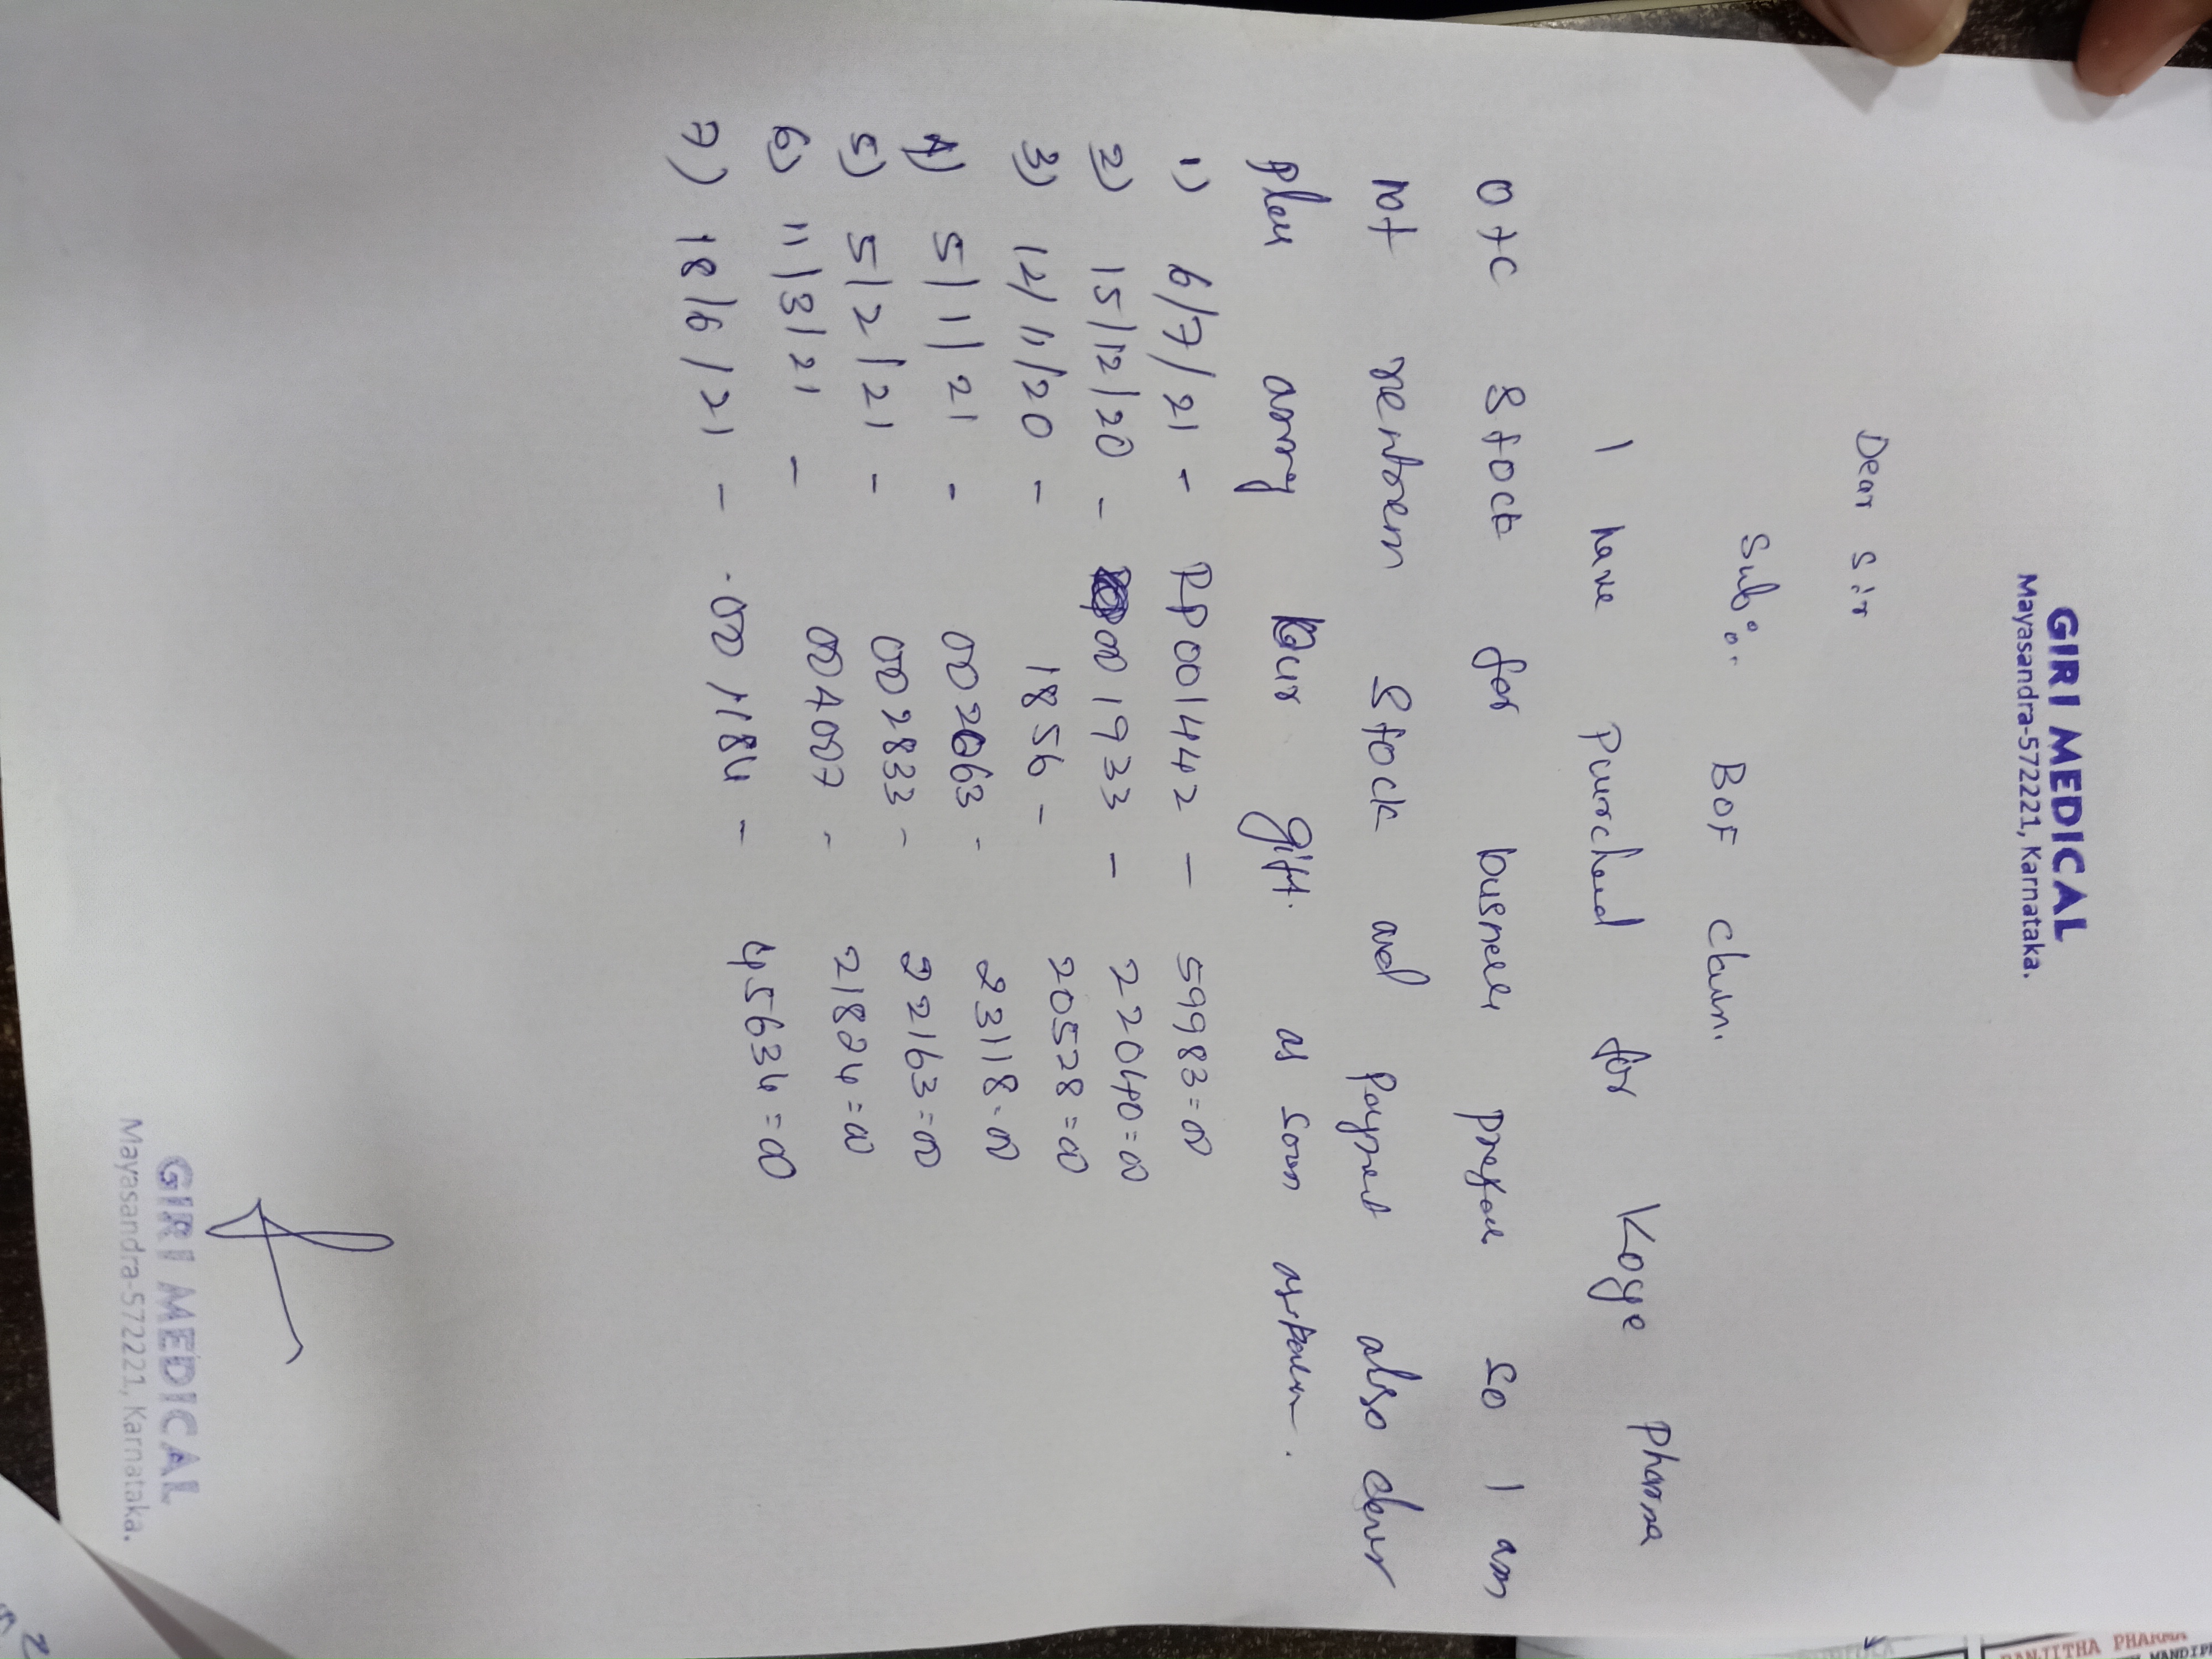 GIRI MEDICAL
Mayasandra-572221, Karnataka.
Dear Sir
Sub:. BOF claim.
I have Purchased for Koye Pharma
OTC Stock for business so I am
not Stock and payment also clear
our gift. as soon as
1) 6/7/21 - PP001442 - 59983=00
2) 15/12/20 - 001933 - 22040=00
3) 12/11/20 - 1856 - 20528=00
4) 5/1/21 - 002663 - 23118=00
5) 5/2/21 - 002833 - 22163=00
6) 11/3/21 - 004007 - 21824=00
7) 18/6/21 - 001184 - 45634=00
GIRI MEDICAL
Mayasandra-572221, Karnataka.
RANJITHA PHARMA